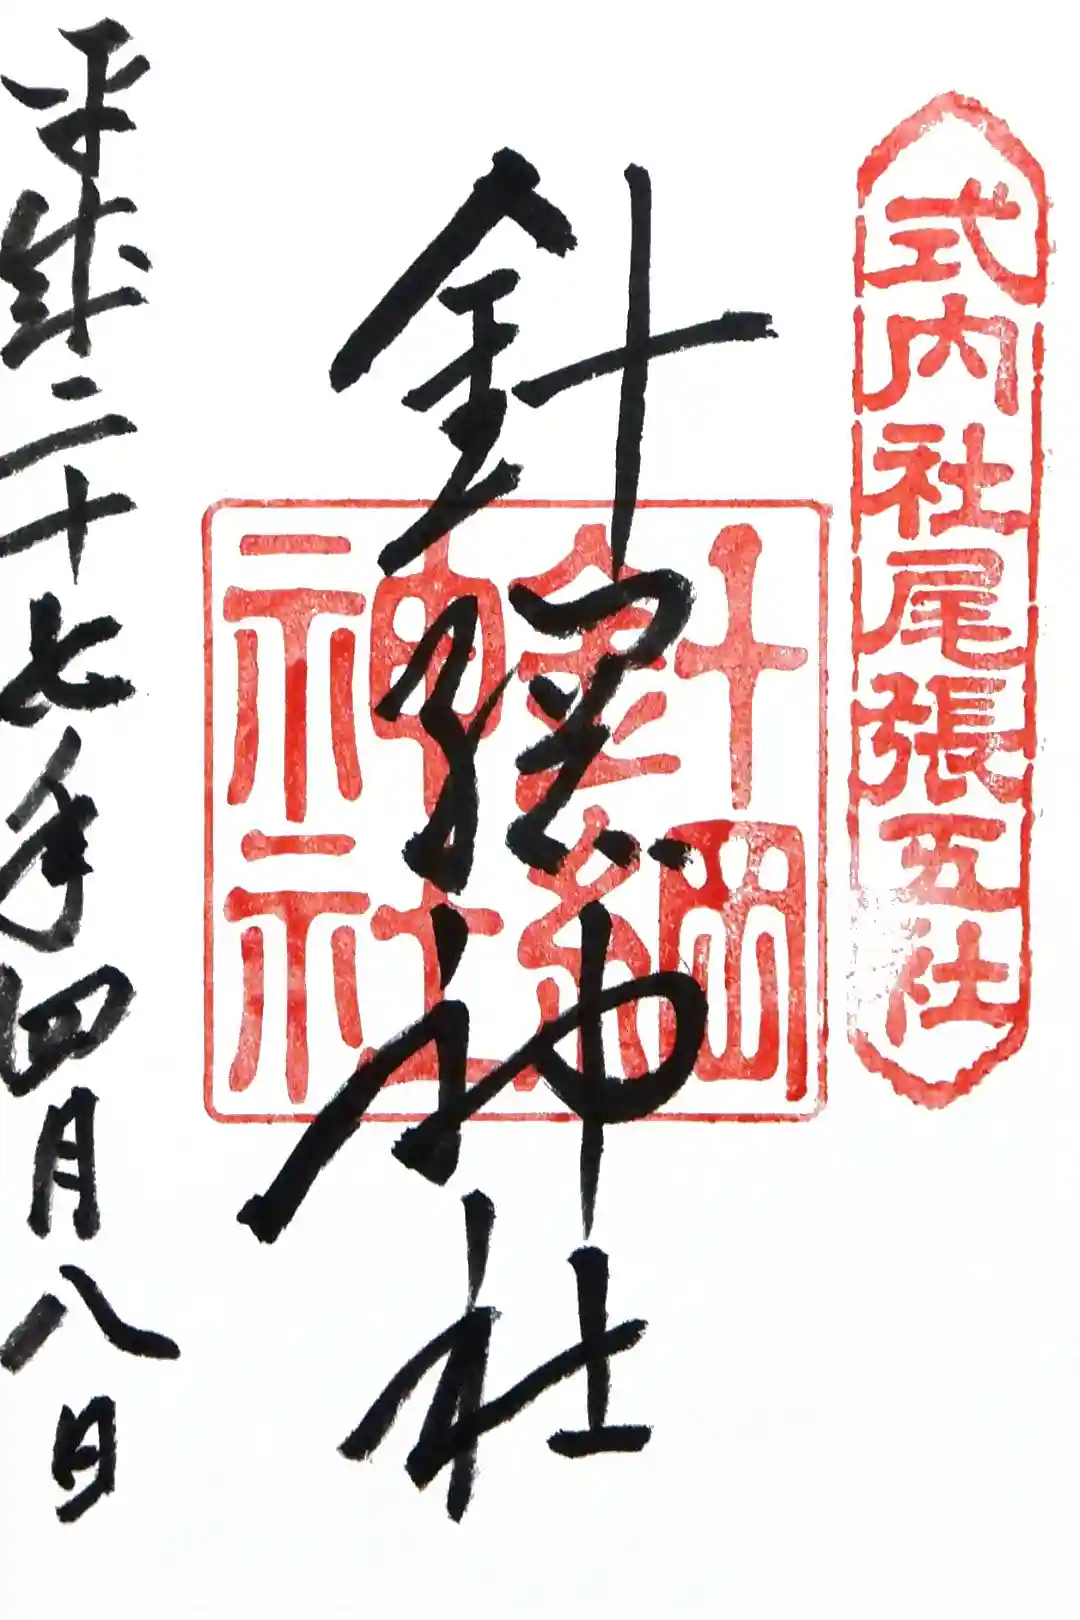 式内社尾張五社
針綱神社
針綱神社
平成二十七年四月八日